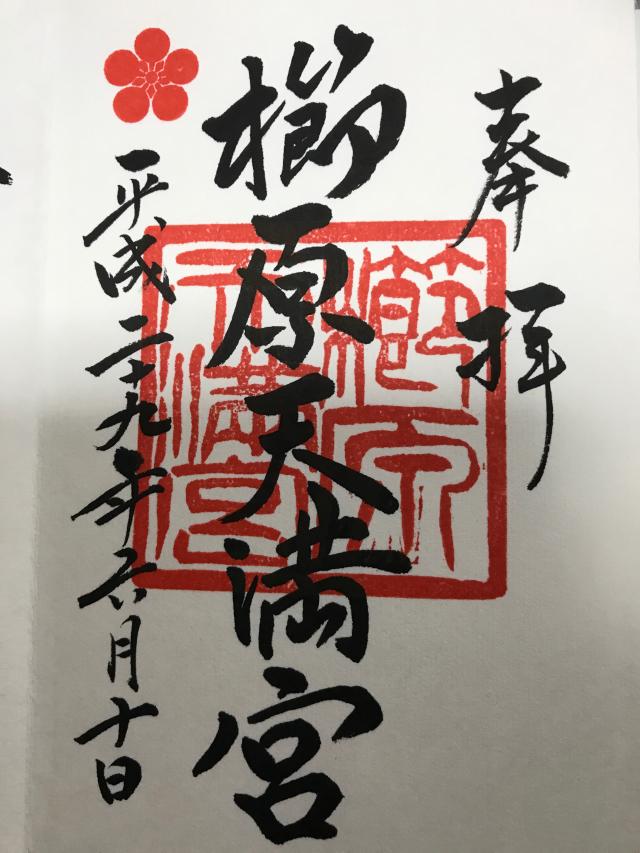 奉拝
櫛原天満宮
平成二十九年六月十日
櫛原
天満宮